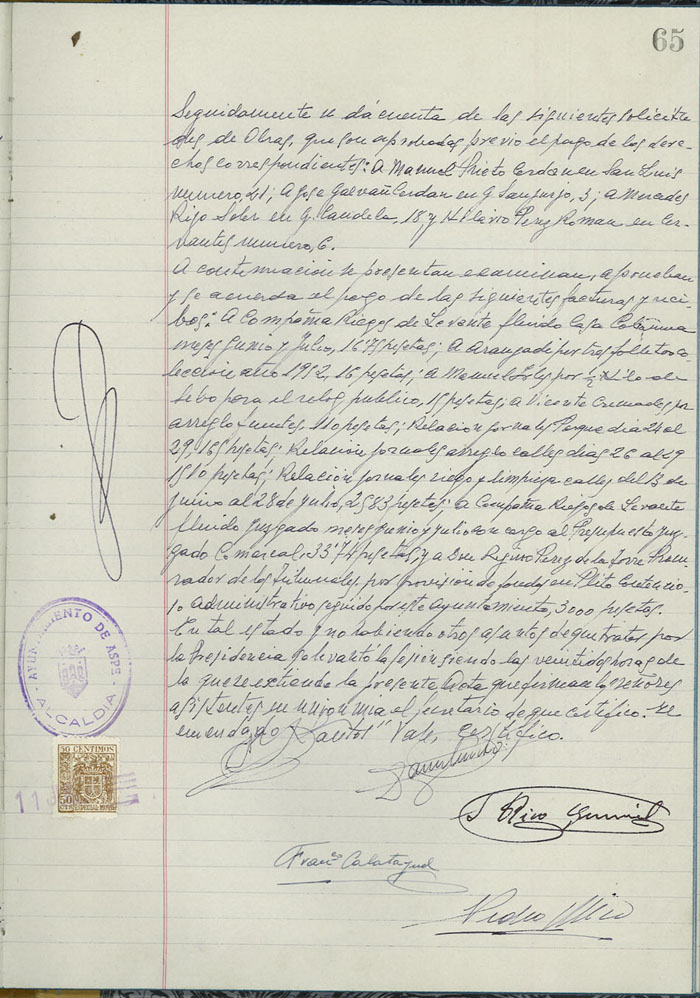 65
Seguidamente se da cuenta de las siguientes solicitu-
des de Obras, que son aprobadas previo el pago de los dere-
chos correspondientes: A Manuel Prieto Cerdan en San Luis
numero, 41; A Jose Galvañ Cerdan en G. Sanjurjo, 3; a Mercedes
Rizo Soler en G. Candela, 18, y Hilario Perez Roman en Cer-
vantes numero, 6.
A continuación se presentan examinan, aprueban
y se acuerda el pago de las siguientes facturas y reci-
bos: A Compañia Riegos de Levante fluido Casa
meses Junio y Julio, 16'75 pesetas; A Aranzadi por tres folletos co-
lección año 1952, 16 pesetas; a Manuel por ½ Kilo de
sebo para el reloj publico, 15 pesetas; a Vicente Cremades por
arreglo fuentes 110 pesetas; Relación jornales Parque dia 24 al
29, 165 pesetas; Relación jornales arreglo calles dias 26 al 29
1510 pesetas; Relación jornales riego y limpieza calles del 13 de
junio al 28 de julio, 2583 pesetas; a Compañia Riegos de Levante
fluido Juzgado meses Junio y Julio con cargo al Presupuesto Juz-
gado Comarcal, 33'74 pesetas, y a Don Regino Perez de la Torre Procu-
rador de los Tribunales por provisión de fondos en Plito Contencio-
so Administrativo seguido por este Ayuntamiento, 3000 pesetas.
En tal estado y no habiendo otros asuntos de que tratar, por
la Presidencia se levantó la sesión siendo las veintidos horas de
la que se extiende la presente Acta que firman los señores
asistentes en union mia el secretario de que certifico. Se
enmendado "Santos" Vale, Certifico.
AYUNTAMIENTO DE ASPE
ALCALDIA
50 CENTIMOS
50
11
Rico
Franco Calatayud
Pedro Mira